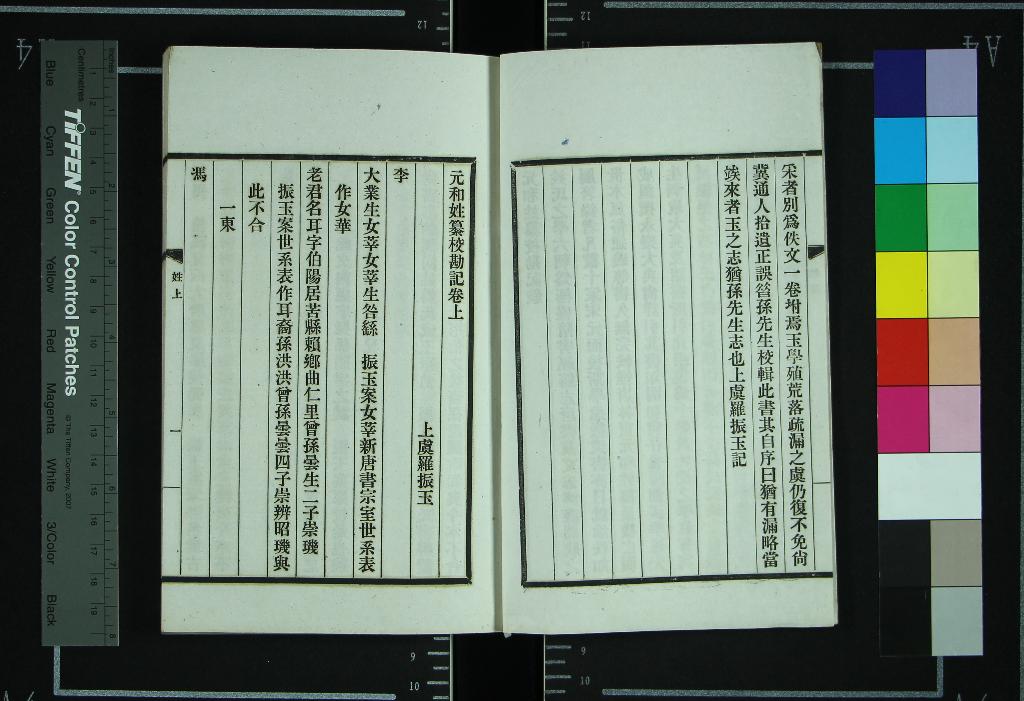 采者別爲佚文一卷坿焉玉學殖荒落疏漏之虞仍復不免尙
冀通人拾遺正誤昔孫先生校輯此書其自序曰猶有漏略當
竢來者玉之志猶孫先生志也上虞羅振玉記
元和姓纂校勘記卷上
上虞羅振玉
李
大業生女莘女莘生咎繇 振玉案女莘新唐書宗室世系表
作女華
老君名耳字伯陽居苦縣賴鄉曲仁里曾孫曇生二子崇璣
振玉案世系表作耳裔孫洪洪曾孫曇曇四子崇辨昭璣與
此不合
一東
馮
姓上
一
Inches
Centimetres
TIFFEN Color Control Patches
© The Tiffen Company, 2007
Blue
Cyan
Green
Yellow
Red
Magenta
White
3/Color
Black
A4
12
11
9
10